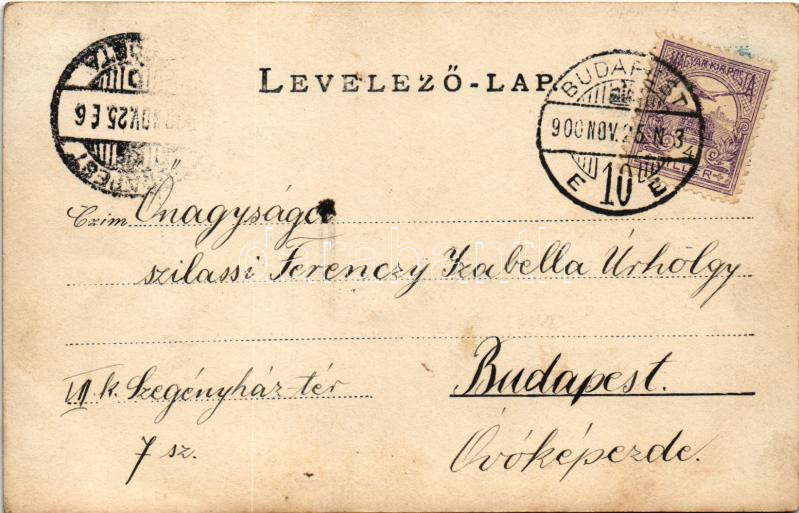 LEVELEZŐ-LAP
BUDAPEST
900 NOV. 25 N. 3
E 10 E
MAGYAR KIR. POSTA
NOV. 25. E 6
BUDAPEST
Czim Őnagysága
szilassi Ferenczy Izabella Úrhölgy
darabanth
VII k. Szegényház-tér
Budapest.
7 sz.
Óvóképezde.